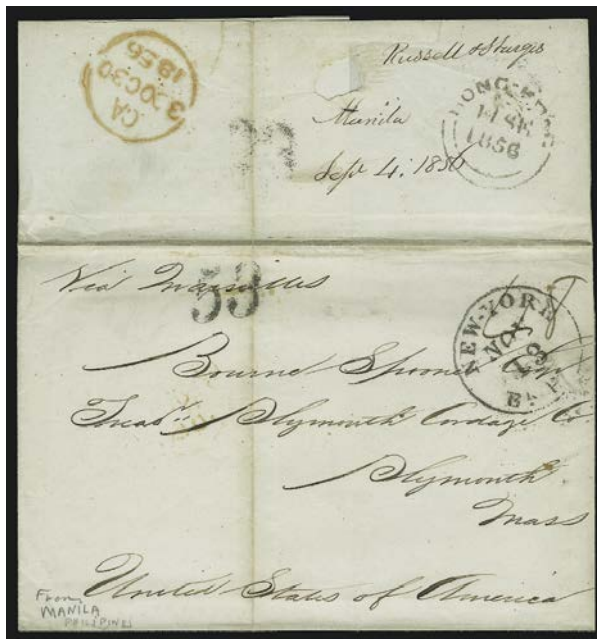 Russell & Sturgis
Manila
Sept 4: 1856
HONG-KONG
1856
CA
3 OC 30
1856
Via Marseilles
53
NEW-YORK
NOV
18
Bourne Spooner Esqr
Treasr. Plymouth Cordage Co.
Plymouth
Mass
United States of America
From
MANILA
PHILIPINES